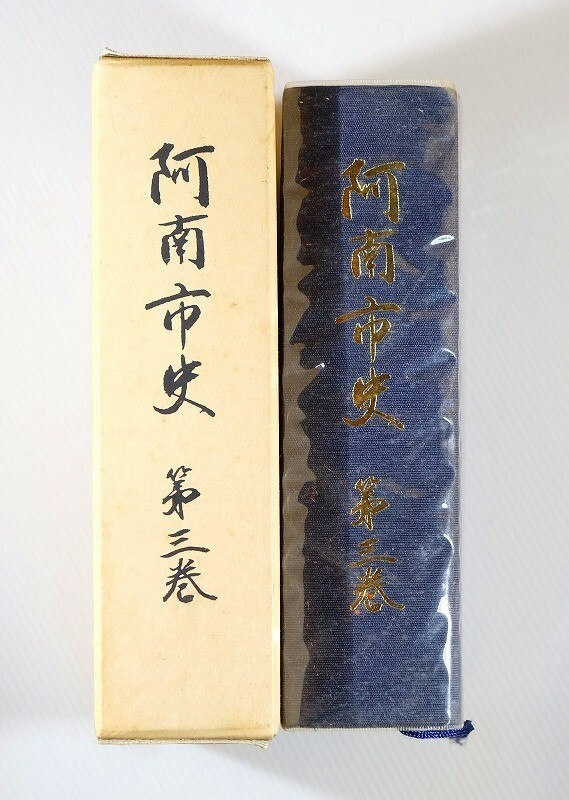 阿南市史 第三巻
阿南市史 第三巻